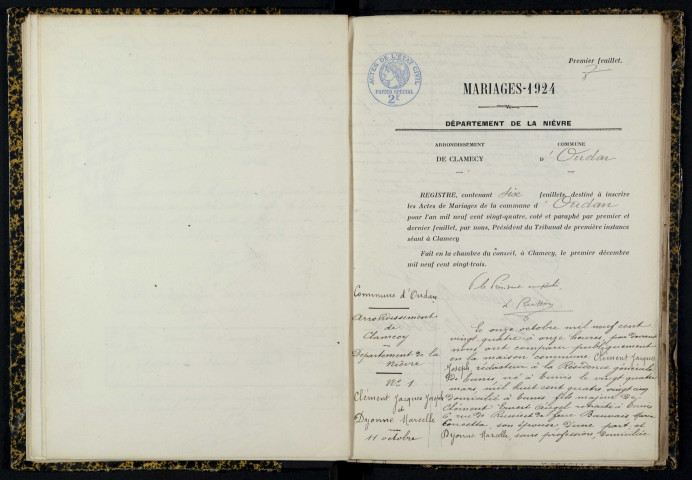 Premier feuillet.
ACTES DE L'ÉTAT CIVIL
PAPIER SPÉCIAL
2
MARIAGES-1924
DÉPARTEMENT DE LA NIÈVRE
ARRONDISSEMENT
DE CLAMECY
COMMUNE
D' Oudan
REGISTRE, contenant six feuillets, destiné à inscrire
les Actes de Mariages de la commune d' Oudan
pour l'an mil neuf cent vingt-quatre, coté et paraphé par premier et
dernier feuillet, par nous, Président du Tribunal de première instance
séant à Clamecy
Fait en la chambre du conseil, à Clamecy, le premier décembre
mil neuf cent vingt-trois.
Commune d'Oudan
Arrondissement
de
Clamecy
Département de la
Nièvre
N° 1
Clément Jacques Joseph
et
Dyonne Marcelle
11 octobre
Le onze octobre mil neuf cent
vingt quatre à onze heures, par devant
nous ont comparu publiquement
en la maison commune Clément Jacques
Joseph, rédacteur à la Résidence générale
de Tunis, né à Tunis le vingt quatre
mars, mil huit cent quatre vingt
domicilié à Tunis fils majeur de
Clément Ernest retraité à Tunis
rue de et de
Concetta, son épouse d'une part, et
Dyonne Marcelle, sans profession, domiciliée